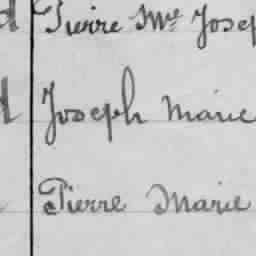 Pierre Mie Josep
Joseph Marie
Pierre Marie